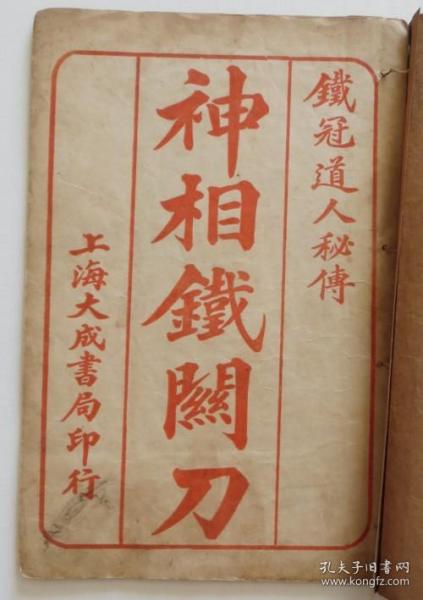 鐵冠道人秘傳
神相鐵關刀
上海大成書局印行
孔夫子旧书网
www.kongfz.com